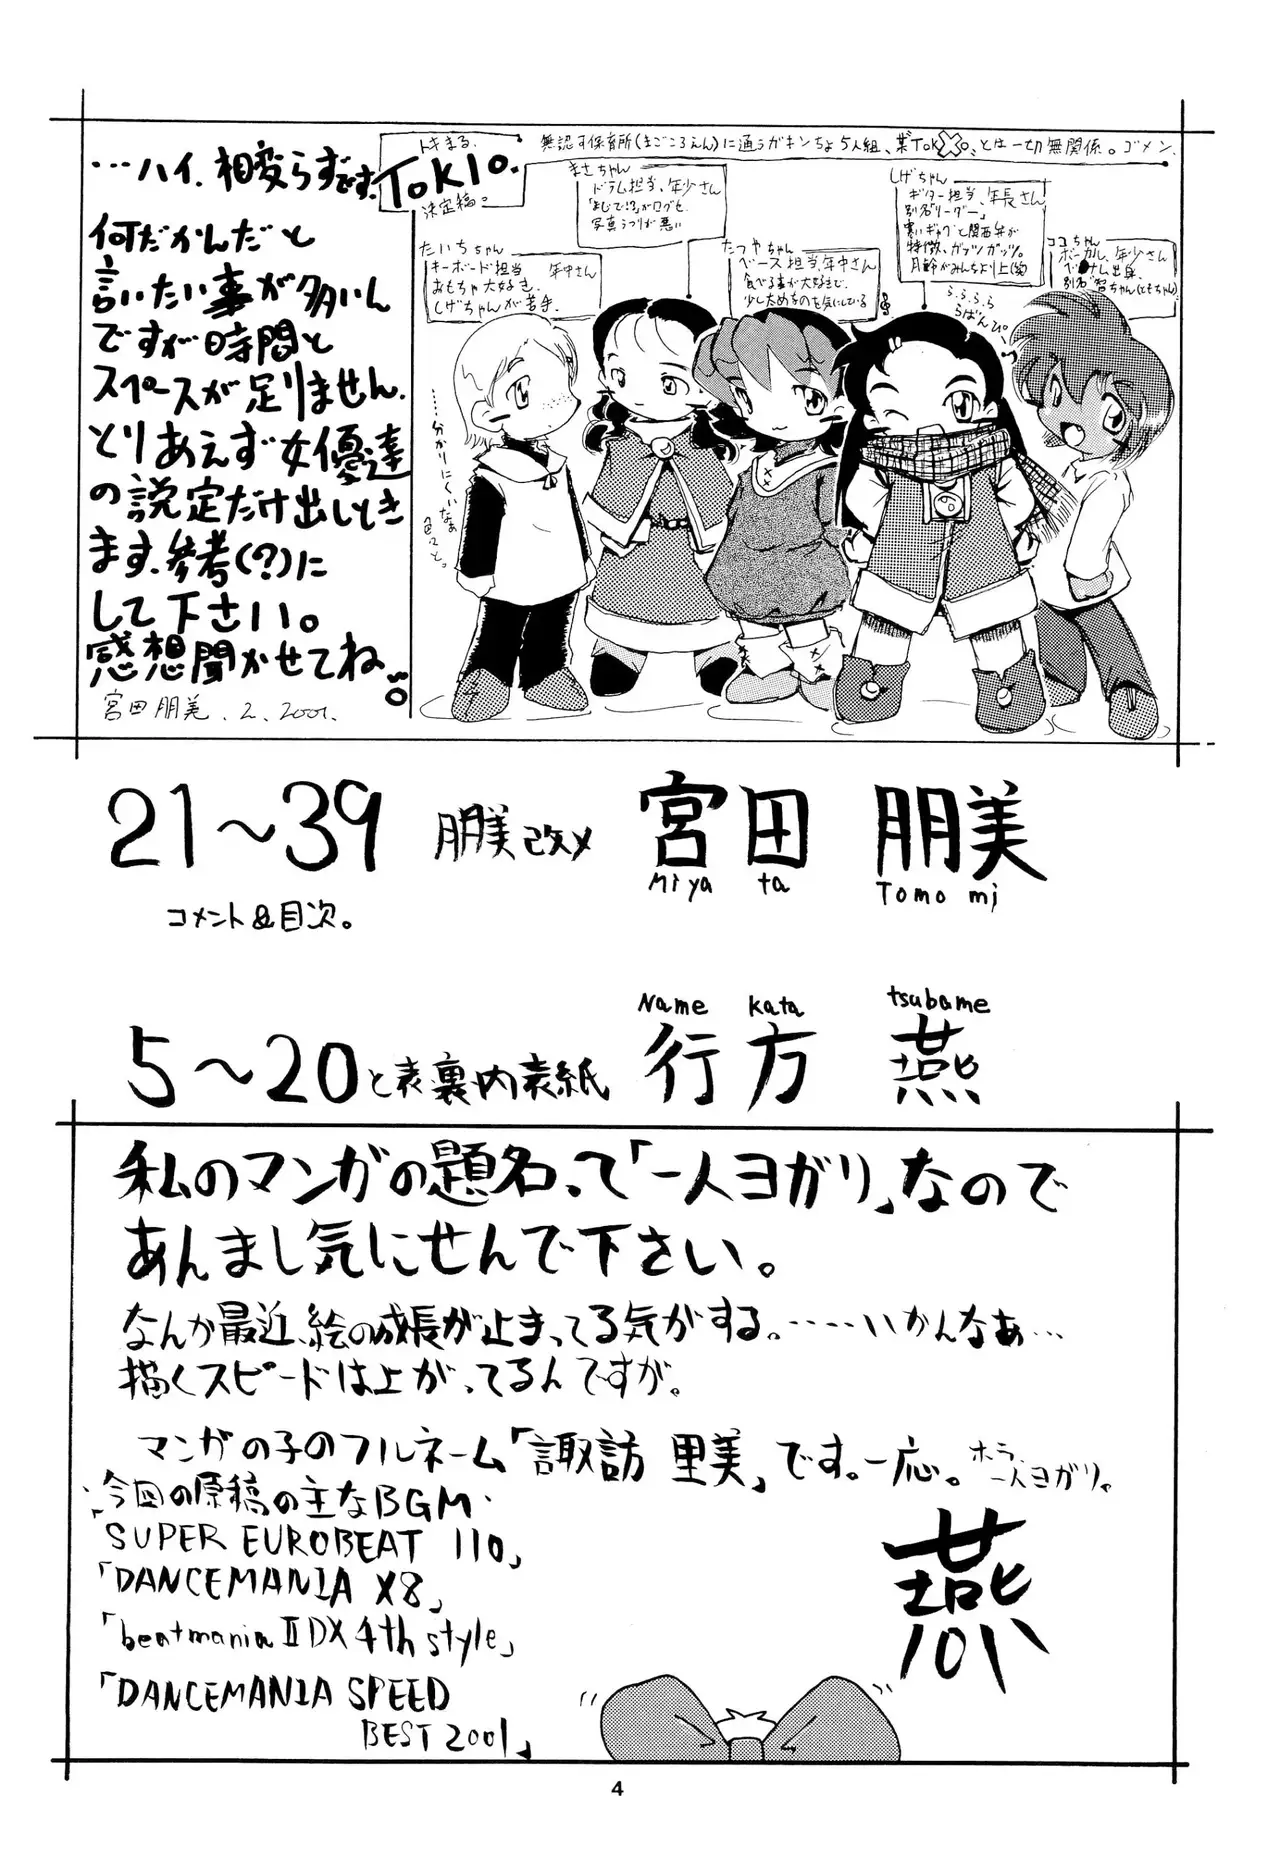 …ハイ、相変らずです、
何だかんだと
言いたい事が多いん
ですが時間と
スペースが足りません。
とりあえず女優達
の設定だけ出しとき
ます、参考(?)に
して下さい。
感想聞かせてね。
宮田朋美. 2. 2001.
トキまる
TOKIO.
決定稿。
無認可保育所(まごころえん)に通うガキンちょ5人組、
とは一切無関係。ゴメン.
たいちちゃん
キーボード担当 年中さん
おもちゃ大好き.
しげちゃんが苦手.
まさちゃん
ドラム担当、年少さん
写真うつりが悪い
たつやちゃん
ベース担当、年中さん
食べる事が大好きで、
少し太めなのを気にしている
しげちゃん
ギター担当、年長さん
別名「リーダー」
寒いギャグと関西弁が
特徴、ガッツガッツ。
月齢がみんなより上
ココちゃん
ボーカル、年少さん
ベトナム出身
らららら
らばんぴ。
……分かりにくいなぁ
色々と。
21〜39 朋美改メ 宮田 朋美
Miya ta Tomo mi
コメント&目次。
Name kata tsubame
5〜20と表裏内表紙 行方 燕
私のマンガの題名って「一人ヨガリ」なので
あんまし気にせんで下さい。
なんか最近、絵の成長が止まってる気がする。……いかんなぁ…
描くスピードは上がってるんですが。
マンガの子のフルネーム「諏訪 里美」です。一応。
ホラ、
一人ヨガリ。
今回の原稿の主なBGM・
「SUPER EUROBEAT 110」
「DANCEMANIA X8」
「beatmania II DX 4th style」
「DANCEMANIA SPEED
BEST 2001」
燕
4